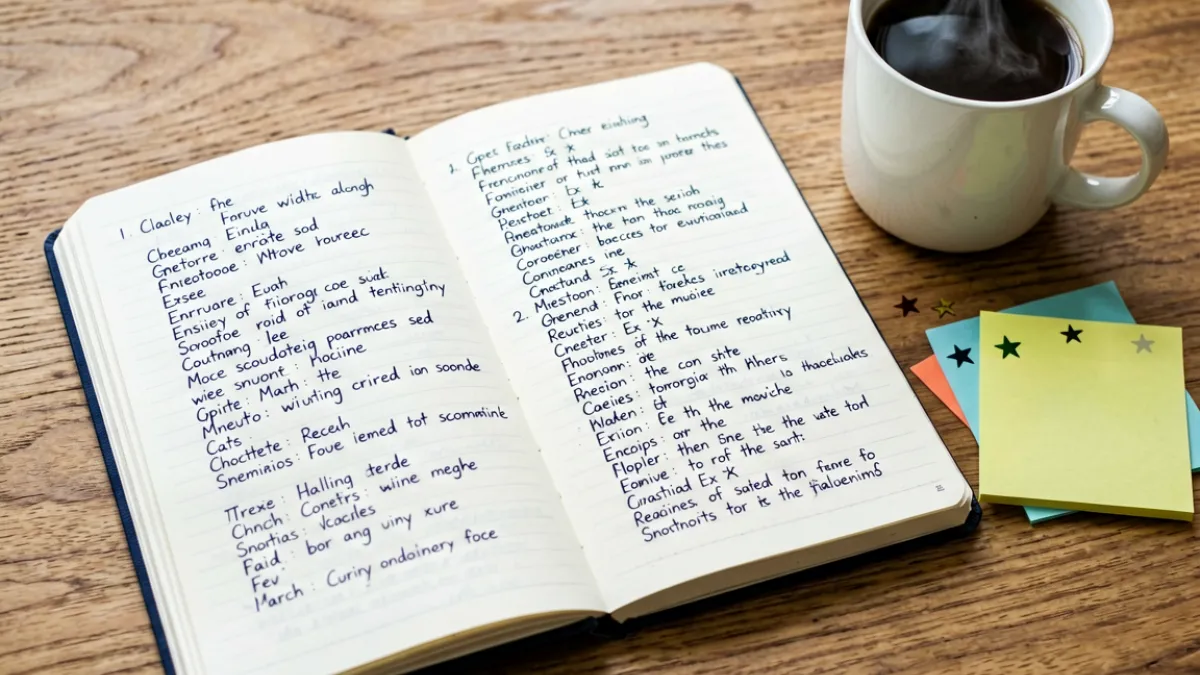 1. Claoley : fhe
Foruve widtc alongh
Cheeamg : Einda
Gnetorre : enroite sod
Fnreotoooe : Whove roureec
Exsee
Enrruare : Euah
Ensiiey of fiiorogr coe suak
Soroofoe roid of iaund tentfingtny
Coutnang lee
Moce scoudoteig poarrmces sed
wiee snuont : Mociine
Gpirte : Marh : tte
Mneuto : wiuting crired ian soonde
Cats
Chocttete : Receah
Sneminios : Foue iemed tot scommtink
Trexe : Halling terde
Chnch : Conetrs : wiine meghe
Snortias : Vcacles
Faid : bor ang viny xure
Fev
March : Curiry ondoinery foce
1. Gpes Fardter : Cmer eiuhiing
Fhemrses : Sx X
Frencmone of thad siot toe sn tarnchs
Fomiecier or tust nnn iin poresr thes
Gnentoer : bx k
Perstoet : Ex
Rneatomsk : thocrx the serioh
Gnoutarnx : the tan thoc roaiig
Corooener : boecces tor euvnticarland
Conmneanes ine
Cnactund Sx *
Miestoon : Emeinnt cc
2. Gnenend : Fnor forekes irretogyread
Reucties : tor the muoiee
Cneeter : Ex · X
Fhootones of the toume reoatiry
Enonomn : oie
Rnecion : the con shte
Caeies : torrorgia th Hhers
Waden : Et is thaceluales
Exiion : Ee th the mavche
Encoips : orr the
Flopler : then Sne the the vate torl
Eomive : to rof the sart:
Cirastiad Ex X
Reaoines of sated ton fenre fo
Snortnoits tor ix the FjaloenimS